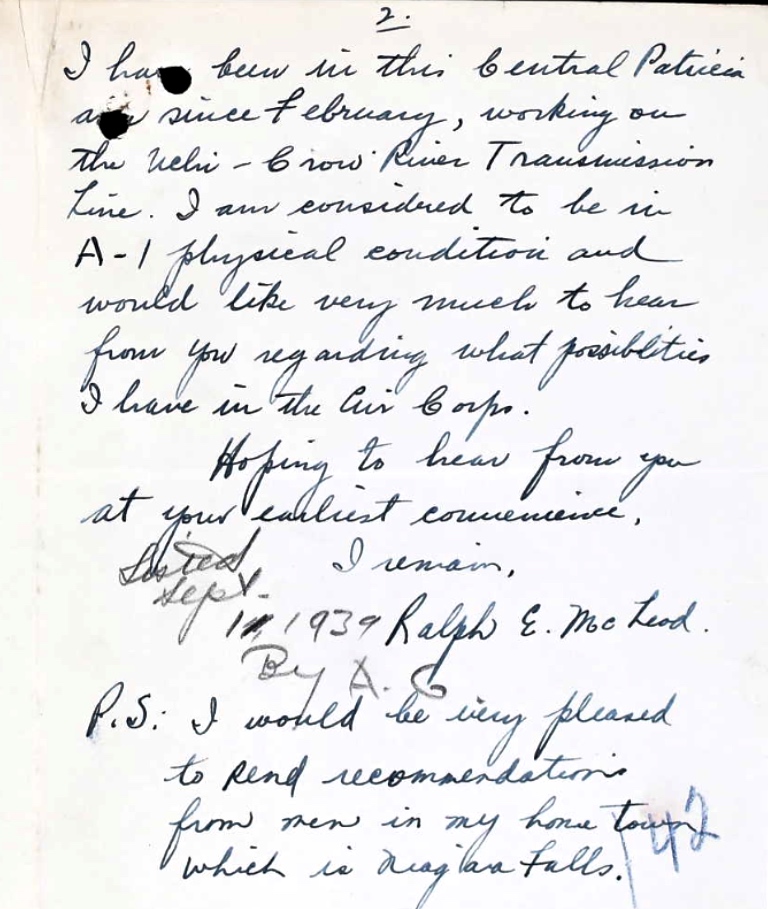 2.
I have been in this Central Patricia
area since February, working on
the Uchi - Crow River Transmission
Line. I am considred to be in
A-1 physical condition and
would like very much to hear
from you regarding what possiblities
I have in the Air Corps.
Hoping to hear from you
at your earliest convenience,
I remain,
Listed
Sept.
11, 1939
Ralph E. McLeod.
By A. G
P.S: I would be very pleased
to send recommendations
from men in my home town
which is Niagara Falls.